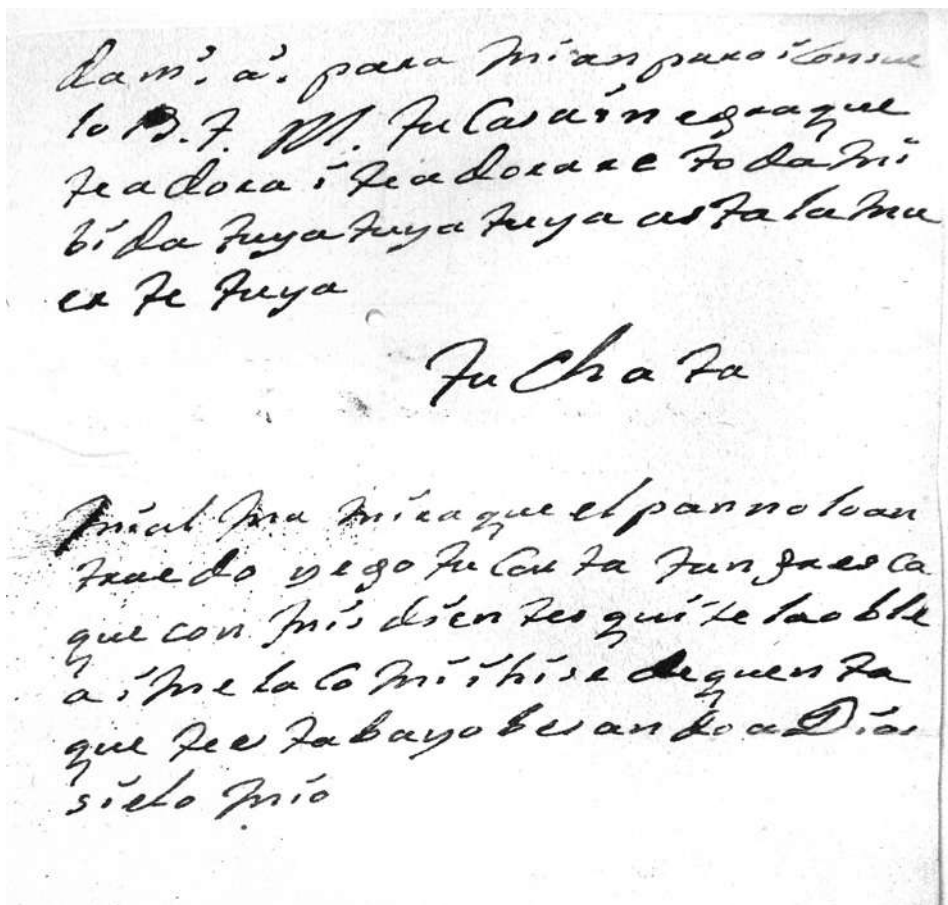 da m.s a.s para mi anparo i consue
lo B. T. M. tu Casa i n egra que
te adora i te adorare to da mi
bi da tuya tuya tuya as ta la mu
er te tuya
tu Cha ta
mi al ma mira que el panno loan
trae do yego tu Car ta tan fres ca
que con mis dien tes qui te la o ble
a i me la co mi i hise de quen ta
que te es ta ba yo be s an do a Dios
sielo mio